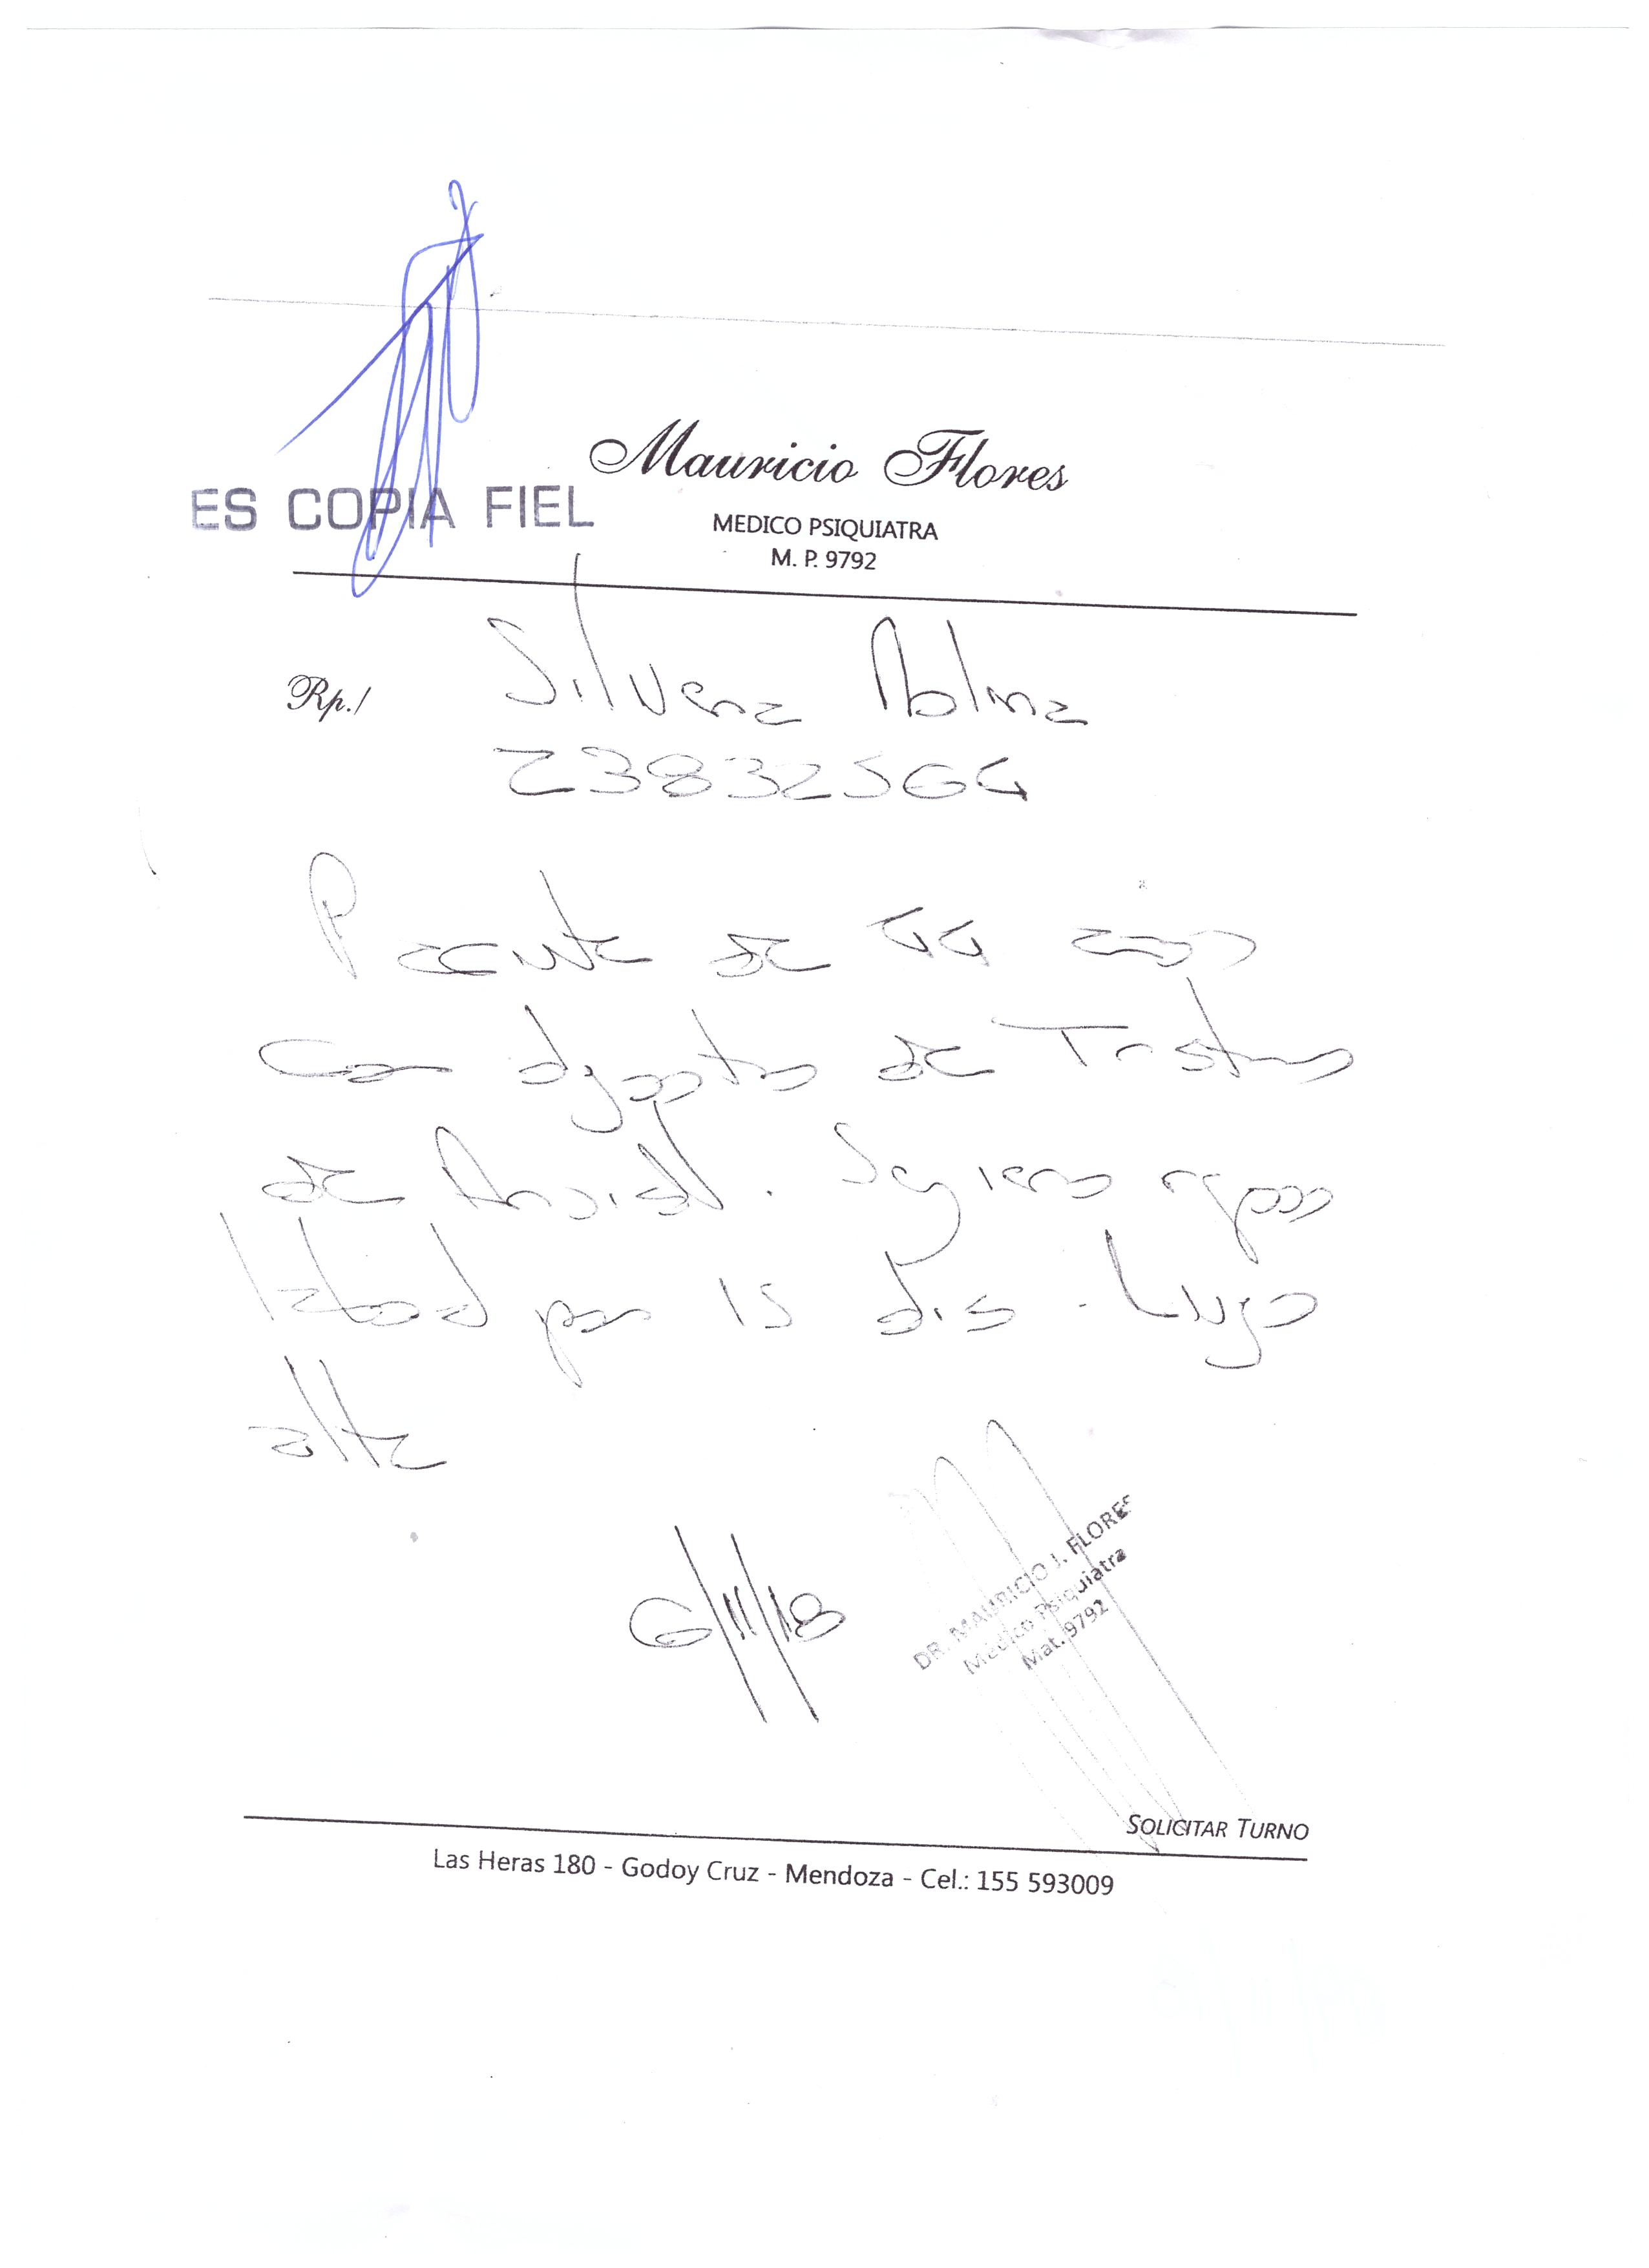 Mauricio Flores
ES COPIA FIEL
MEDICO PSIQUIATRA
M. P. 9792
Rp./ Silvana Molina
23832564
Paciente de 44 años
con diagnostico de Trastorno
de Ansiedad. Sugiero reposo
laboral por 15 dias. Luego
alta
6/11/18
DR. MAURICIO J. FLORES
Médico Psiquiatra
Mat. 9792
SOLICITAR TURNO
Las Heras 180 - Godoy Cruz - Mendoza - Cel.: 155 593009